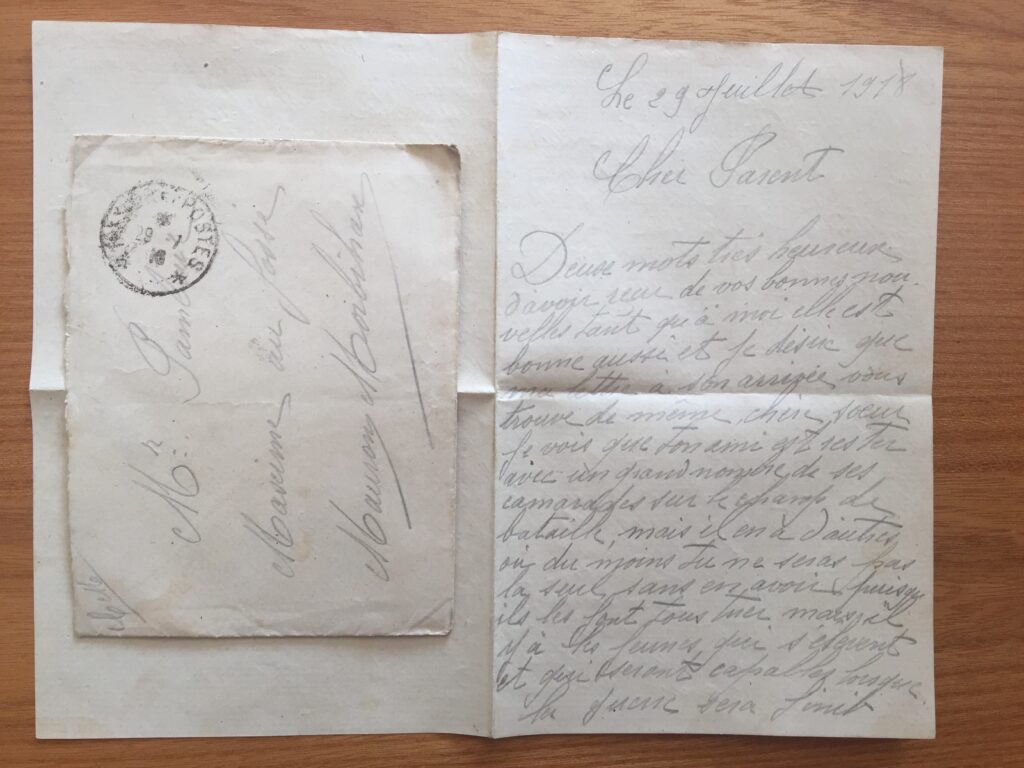 Le 29 Juillet 1918
Cher Parent
Deux mots très heureux
d'avoir reçu de vos bonnes nou-
velles tant qu'à moi elle est
bonne aussi et je désire que
ma lettre à son arrivée vous
trouve de même, chère soeur
je vois que ton ami est rester
avec un grand nombre de ses
camarades sur le champ de
bataille, mais il en à d'autres
ou du moins tu ne seras pas
la seul sans en avoir puisque
ils les font tous tuer mais il
y'a les jeunes qui
et qui seront capables lorsque
la guerre sera finit
POSTES
Mr
Maxime au fossé
Mauron Morbihan